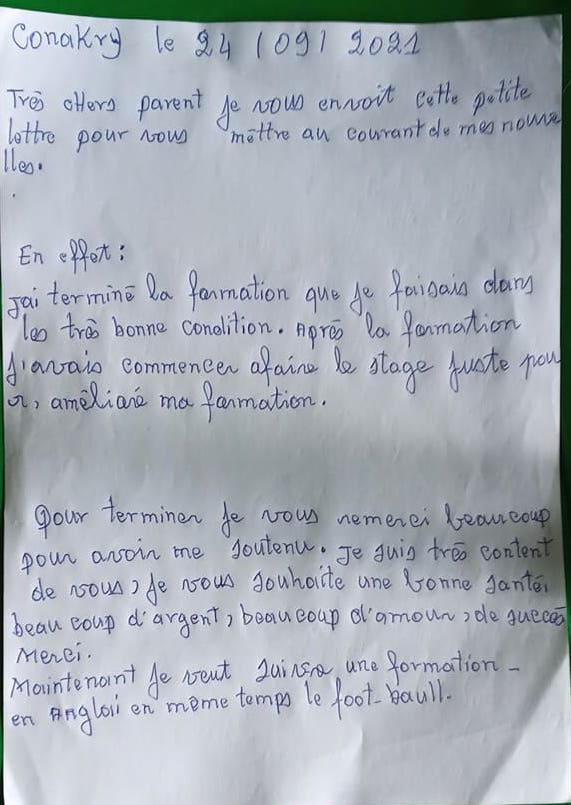 Conakry le 24 / 09 / 2021
Très chers parent je vous envoit cette petite
lettre pour vous mettre au courant de mes nouve
lles.
En effet :
J'ai terminé la formation que je faisais dans
les très bonne condition. Après la formation
j'avais commencer afaire le stage juste pou
r, améliaré ma formation.
Pour terminer je vous remerci beaucoup
pour avoir me soutenu. Je suis très content
de vous, je vous souhaite une bonne santé,
beau coup d'argent, beaucoup d'amour, de succès
Merci.
Maintenant je veut suivre une formation -
en Anglaii en même temps le foot-baull.